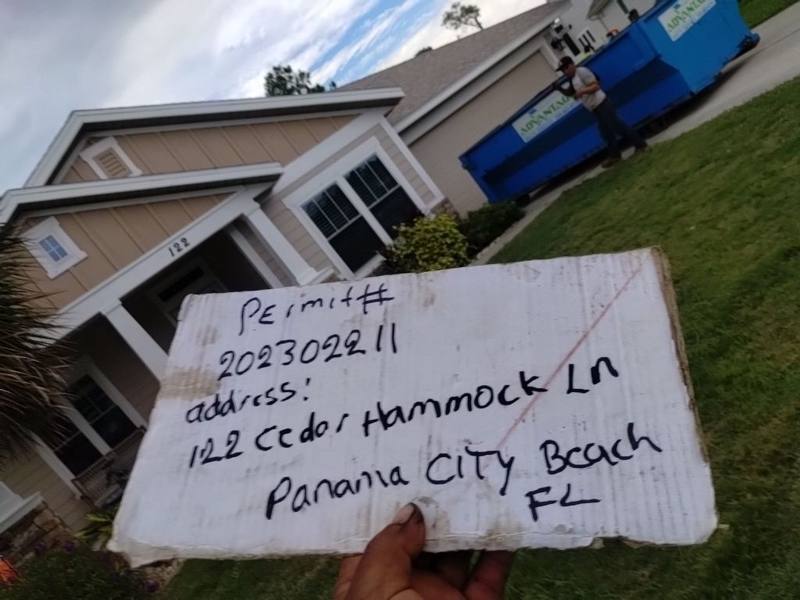 122
ADVANTAG
Permit#
202302211
address:
122 Cedar Hammock Ln
Panama City Beach
FL